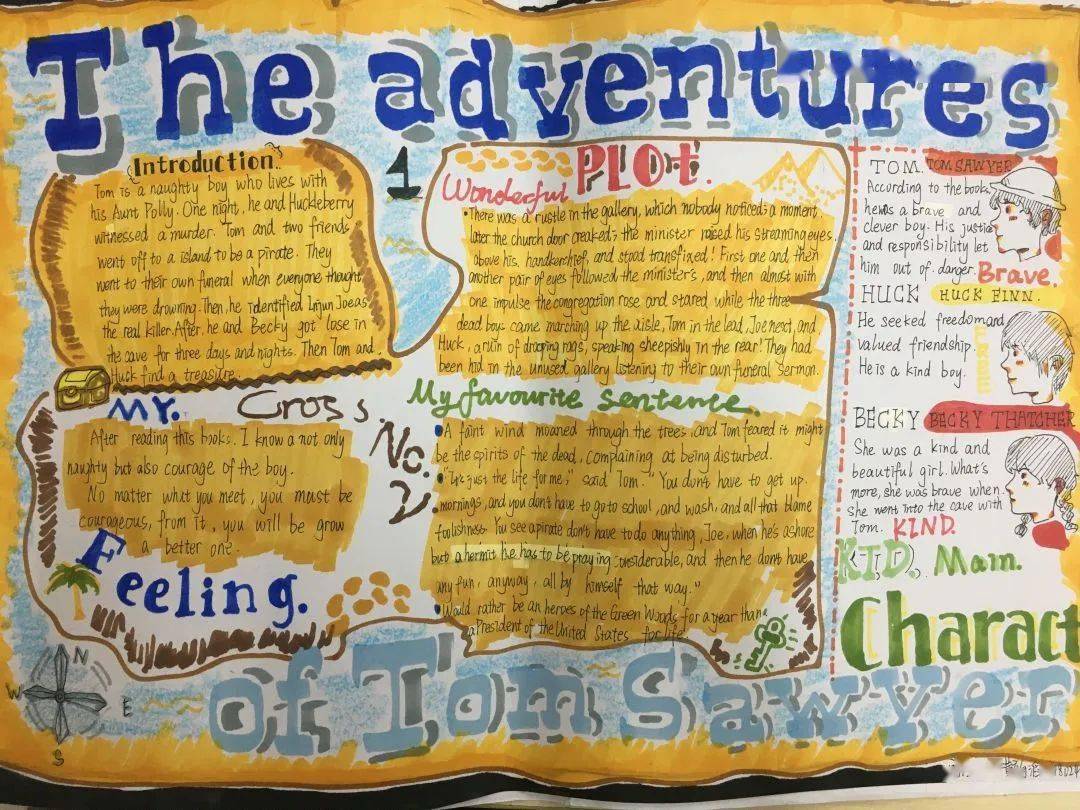 The adventures
Introduction.
Tom is a naughty boy who lives with
his Aunt Polly. One night, he and Huckleberry
witnessed a murder. Tom and two friends
went off to a island to be a pirate. They
went to their own funeral when everyone thought
they were drowning. Then, he identified Injun Joe as
the real killer. After. he and Becky got lose in
the cave for three days and nights. Then Tom and
Huck find a treasure.
1
Wonderful PLOt.
•There was a rustle in the gallery, which nobody noticed; a moment
later the church door creaked; the minister raised his streaming eyes
above his handkerchief, and stood transfixed! First one and then
another pair of eyes followed the minister's, and then almost with
one impulse the congregation rose and stared while the three
dead boys came marching up the aisle, Tom in the lead, Joe next, and
Huck, a ruin of drooping rags, speaking sheepishly in the rear! They had
been hid in the unused gallery listening to their own funeral sermon.
MY.
After reading this books. I know a not only
naughty but also courage of the boy.
No matter what you meet, you must be
courageous, from it, you will be grow
a better one.
Feeling.
Cross.
No.
2
My favourite sentence.
•A faint wind moaned through the trees, and Tom feared it might
be the spirits of the dead, complaining at being disturbed.
• "It's just the life for me," said Tom. "You don't have to get up
mornings, and you don't have to go to school, and wash, and all that blame
foolishness. You see a pirate don't have to do anything, Joe, when he's ashore
but a hermit he has to be praying considerable, and then he don't have
any fun, anyway, all by himself that way."
•Would rather be an heroes of the Green Woods for a year than
a President of the United States for life
TOM. TOM SAWYER
According to the book,
he was a brave and
clever boy. His justice
and responsibility let
him out of danger. Brave.
HUCK HUCK FINN.
He seeked freedom and
valued friendship.
He is a kind boy.
BECKY BECKY THATCHER
She was a kind and
beautiful girl. What's
more, she was brave when
She went into the cave with
Tom. KIND.
KID. Mam.
Charact
N
W E
S
of Tom Sawyer